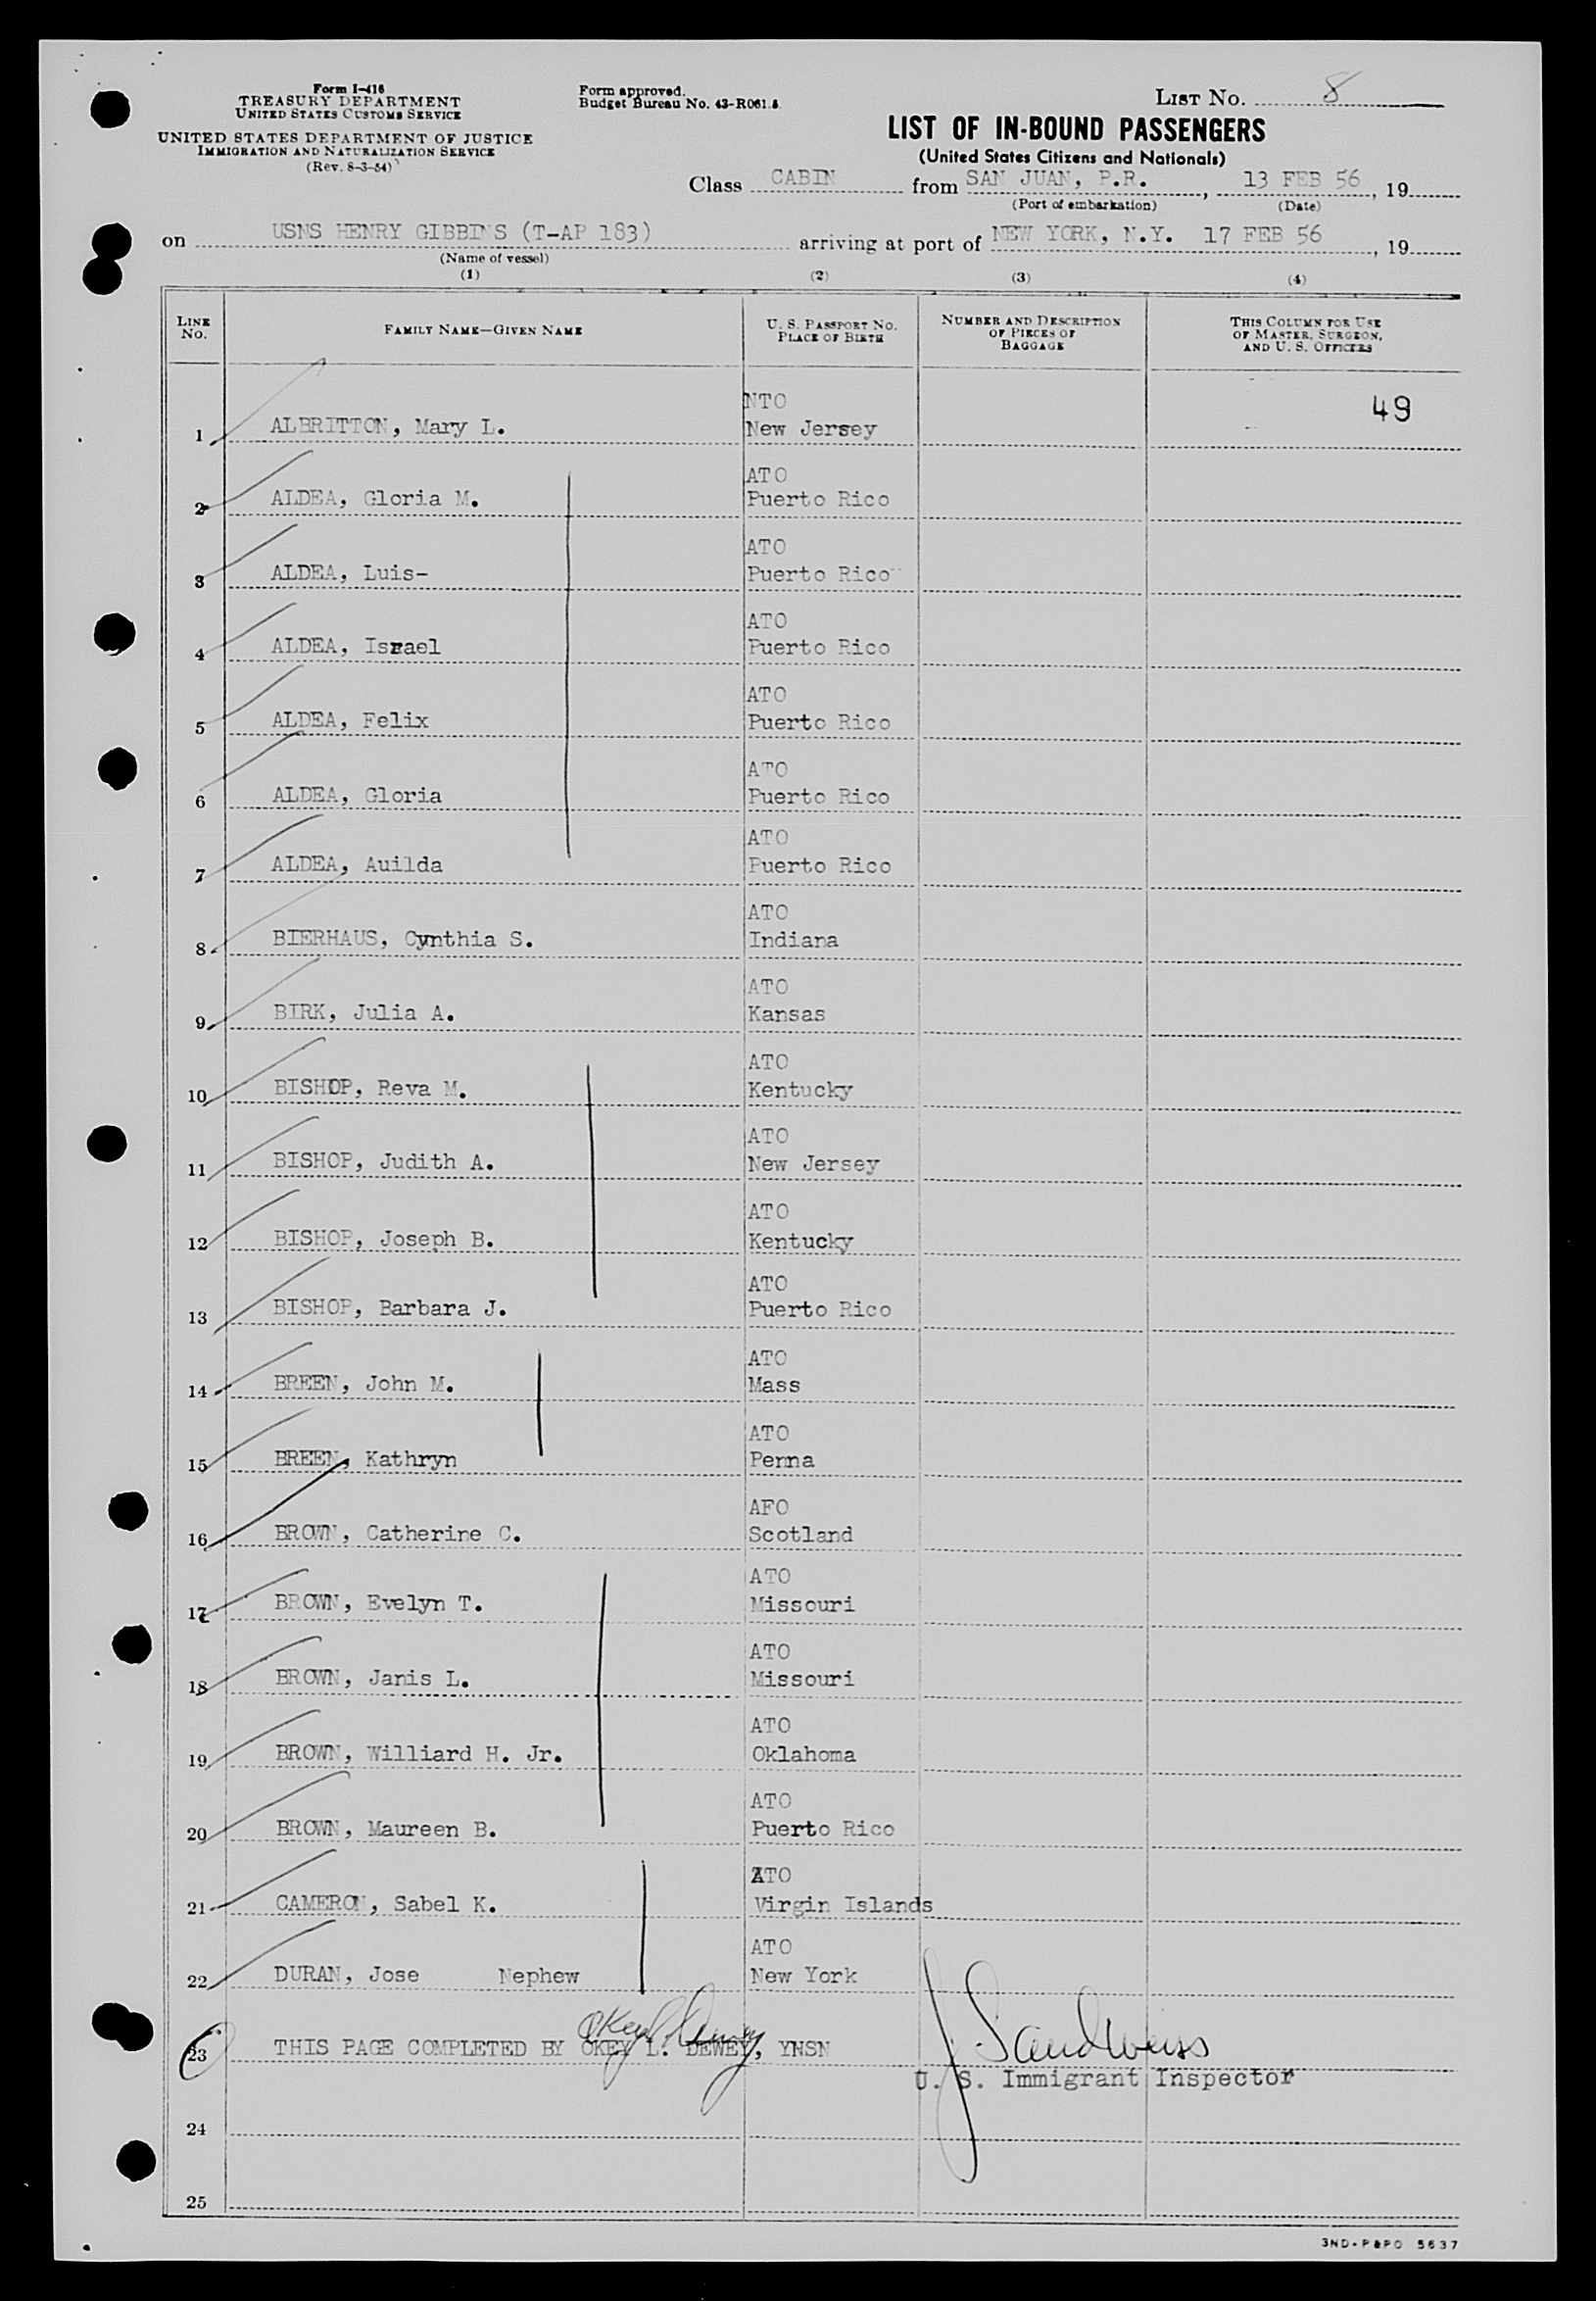 Form I-416
TREASURY DEPARTMENT
UNITED STATES CUSTOMS SERVICE
UNITED STATES DEPARTMENT OF JUSTICE
IMMIGRATION AND NATURALIZATION SERVICE
(Rev. 8-3-54)
Form approved.
Budget Bureau No. 43-R061.5
LIST NO. 8
LIST OF IN-BOUND PASSENGERS
(United States Citizens and Nationals)
Class CABIN from SAN JUAN, P.R., 13 FEB 56, 19
(Port of embarkation) (Date)
on USNS HENRY GIBBINS (T-AP 183) arriving at port of NEW YORK, N.Y. 17 FEB 56, 19
(Name of vessel)
(1) (2) (3) (4)
LINE NO. FAMILY NAME—GIVEN NAME U. S. PASSPORT NO. PLACE OF BIRTH NUMBER AND DESCRIPTION OF PIECES OF BAGGAGE THIS COLUMN FOR USE OF MASTER, SURGEON, AND U. S. OFFICERS
NTO 49
1 ALBRITTON, Mary L. New Jersey
ATO
2 ALDEA, Gloria M. Puerto Rico
ATO
3 ALDEA, Luis- Puerto Rico
ATO
4 ALDEA, Israel Puerto Rico
ATO
5 ALDEA, Felix Puerto Rico
ATO
6 ALDEA, Gloria Puerto Rico
ATO
7 ALDEA, Auilda Puerto Rico
ATO
8 BIERHAUS, Cynthia S. Indiana
ATO
9 BIRK, Julia A. Kansas
ATO
10 BISHOP, Reva M. Kentucky
ATO
11 BISHOP, Judith A. New Jersey
ATO
12 BISHOP, Joseph B. Kentucky
ATO
13 BISHOP, Barbara J. Puerto Rico
ATO
14 BREEN, John M. Mass
ATO
15 BREEN, Kathryn Penna
AFO
16 BROWN, Catherine C. Scotland
ATO
17 BROWN, Evelyn T. Missouri
ATO
18 BROWN, Janis L. Missouri
ATO
19 BROWN, Williard H. Jr. Oklahoma
ATO
20 BROWN, Maureen B. Puerto Rico
ATO
21 CAMERON, Sabel K. Virgin Islands
ATO
22 DURAN, Jose Nephew New York
Okey L. Dewey
23 THIS PAGE COMPLETED BY OKEY L. DEWEY, YNSN J. Sandweiss
U. S. Immigrant Inspector
24
25
3ND-P&PO 5637